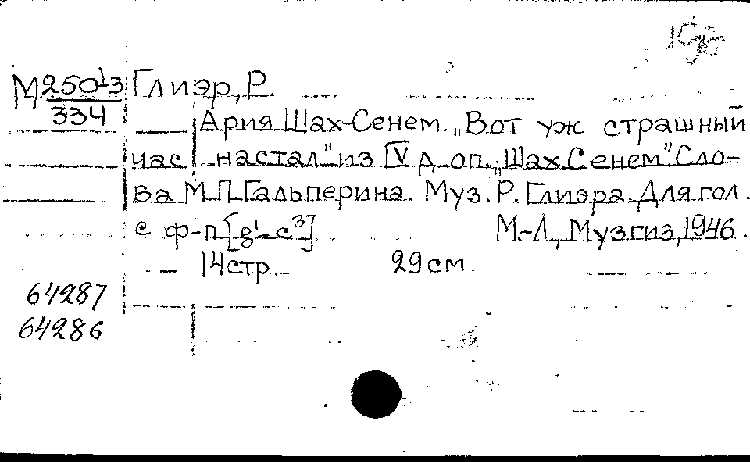 М 250 1/3 Глиэр, Р
334
Ария Шах-Сенем. „Вот уж страшный
час настал" из IV д. оп. „Шах Сенем" Сло-
ва М.П. Гальперина. Муз. Р. Глиэра. Для гол.
с ф-п [g¹-c³]
М-Л, Музгиз, 1946.
14 стр. 29 см.
64287
64286